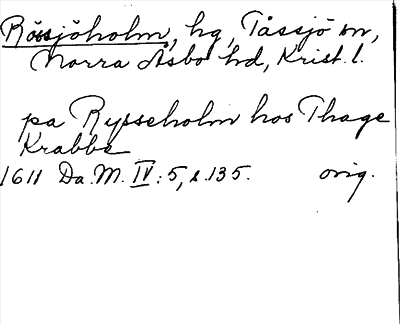 Rössjöholm, hg, Tåssjö sn,
Norra Åsbo hd, Krist. l.
pa Rysseholm hos Thage
Krabbe
1611 Da. M. IV: 5, s. 135. orig.